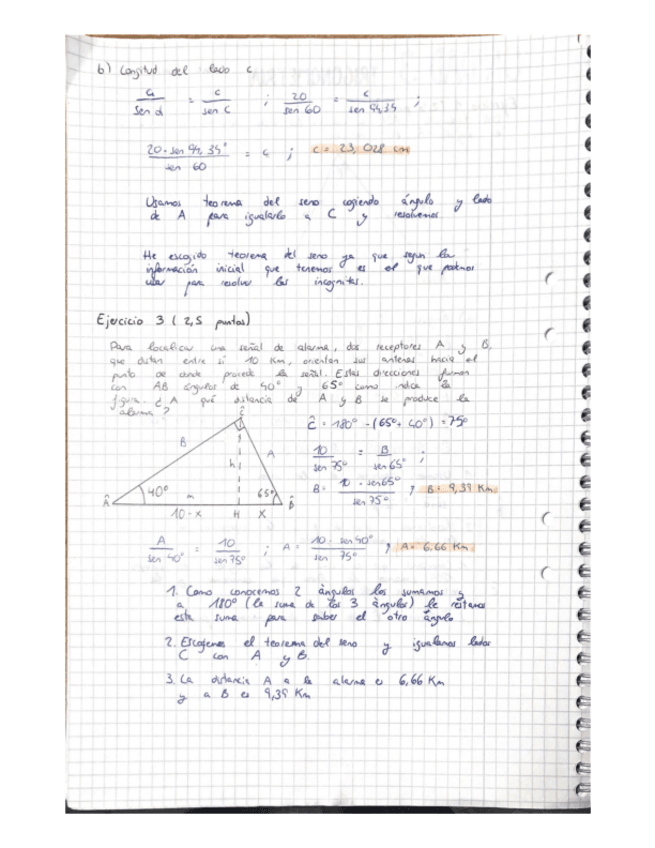 b) Longitud del lado c
a/sen α = c/sen C ; 20/sen 60 = c/sen 94,34 ;
20 · sen 94,34°/sen 60 = c ; c = 23,028 cm
Usamos teorema del seno cogiendo ángulo y lado
de A para igualarlo a C y resolvemos
He escogido teorema del seno ya que segun la
información inicial que tenemos es el que podemos
usar para resolver las incognitas.
Ejercicio 3 (2,5 puntos)
Para localizar una señal de alarma, dos receptores A y B,
que distan entre si 10 Km, orientan sus antenas hacia el
punto de donde procede la señal. Estas direcciones forman
con AB ángulos de 40° y 65° como indica la
figura. ¿A qué distancia de A y B se produce la
alarma?
Ĉ
Ĉ = 180° - (65° + 40°) = 75°
B
A
h
10/sen 75° = B/sen 65° ;
B = 10 · sen 65°/sen 75° ; B = 9,39 Km
40°
m
65°
Â
B̂
10 - x H x
A/sen 40° = 10/sen 75° ; A = 10 · sen 40°/sen 75° ; A = 6,66 Km
1. Como conocemos 2 ángulos los sumamos y
a 180° (la suma de los 3 ángulos) le restamos
esta suma para saber el otro ángulo
2. Escogemos el teorema del seno y igualamos lados
C con A y B.
3. La distancia A a la alarma es 6,66 Km
y a B es 9,39 Km